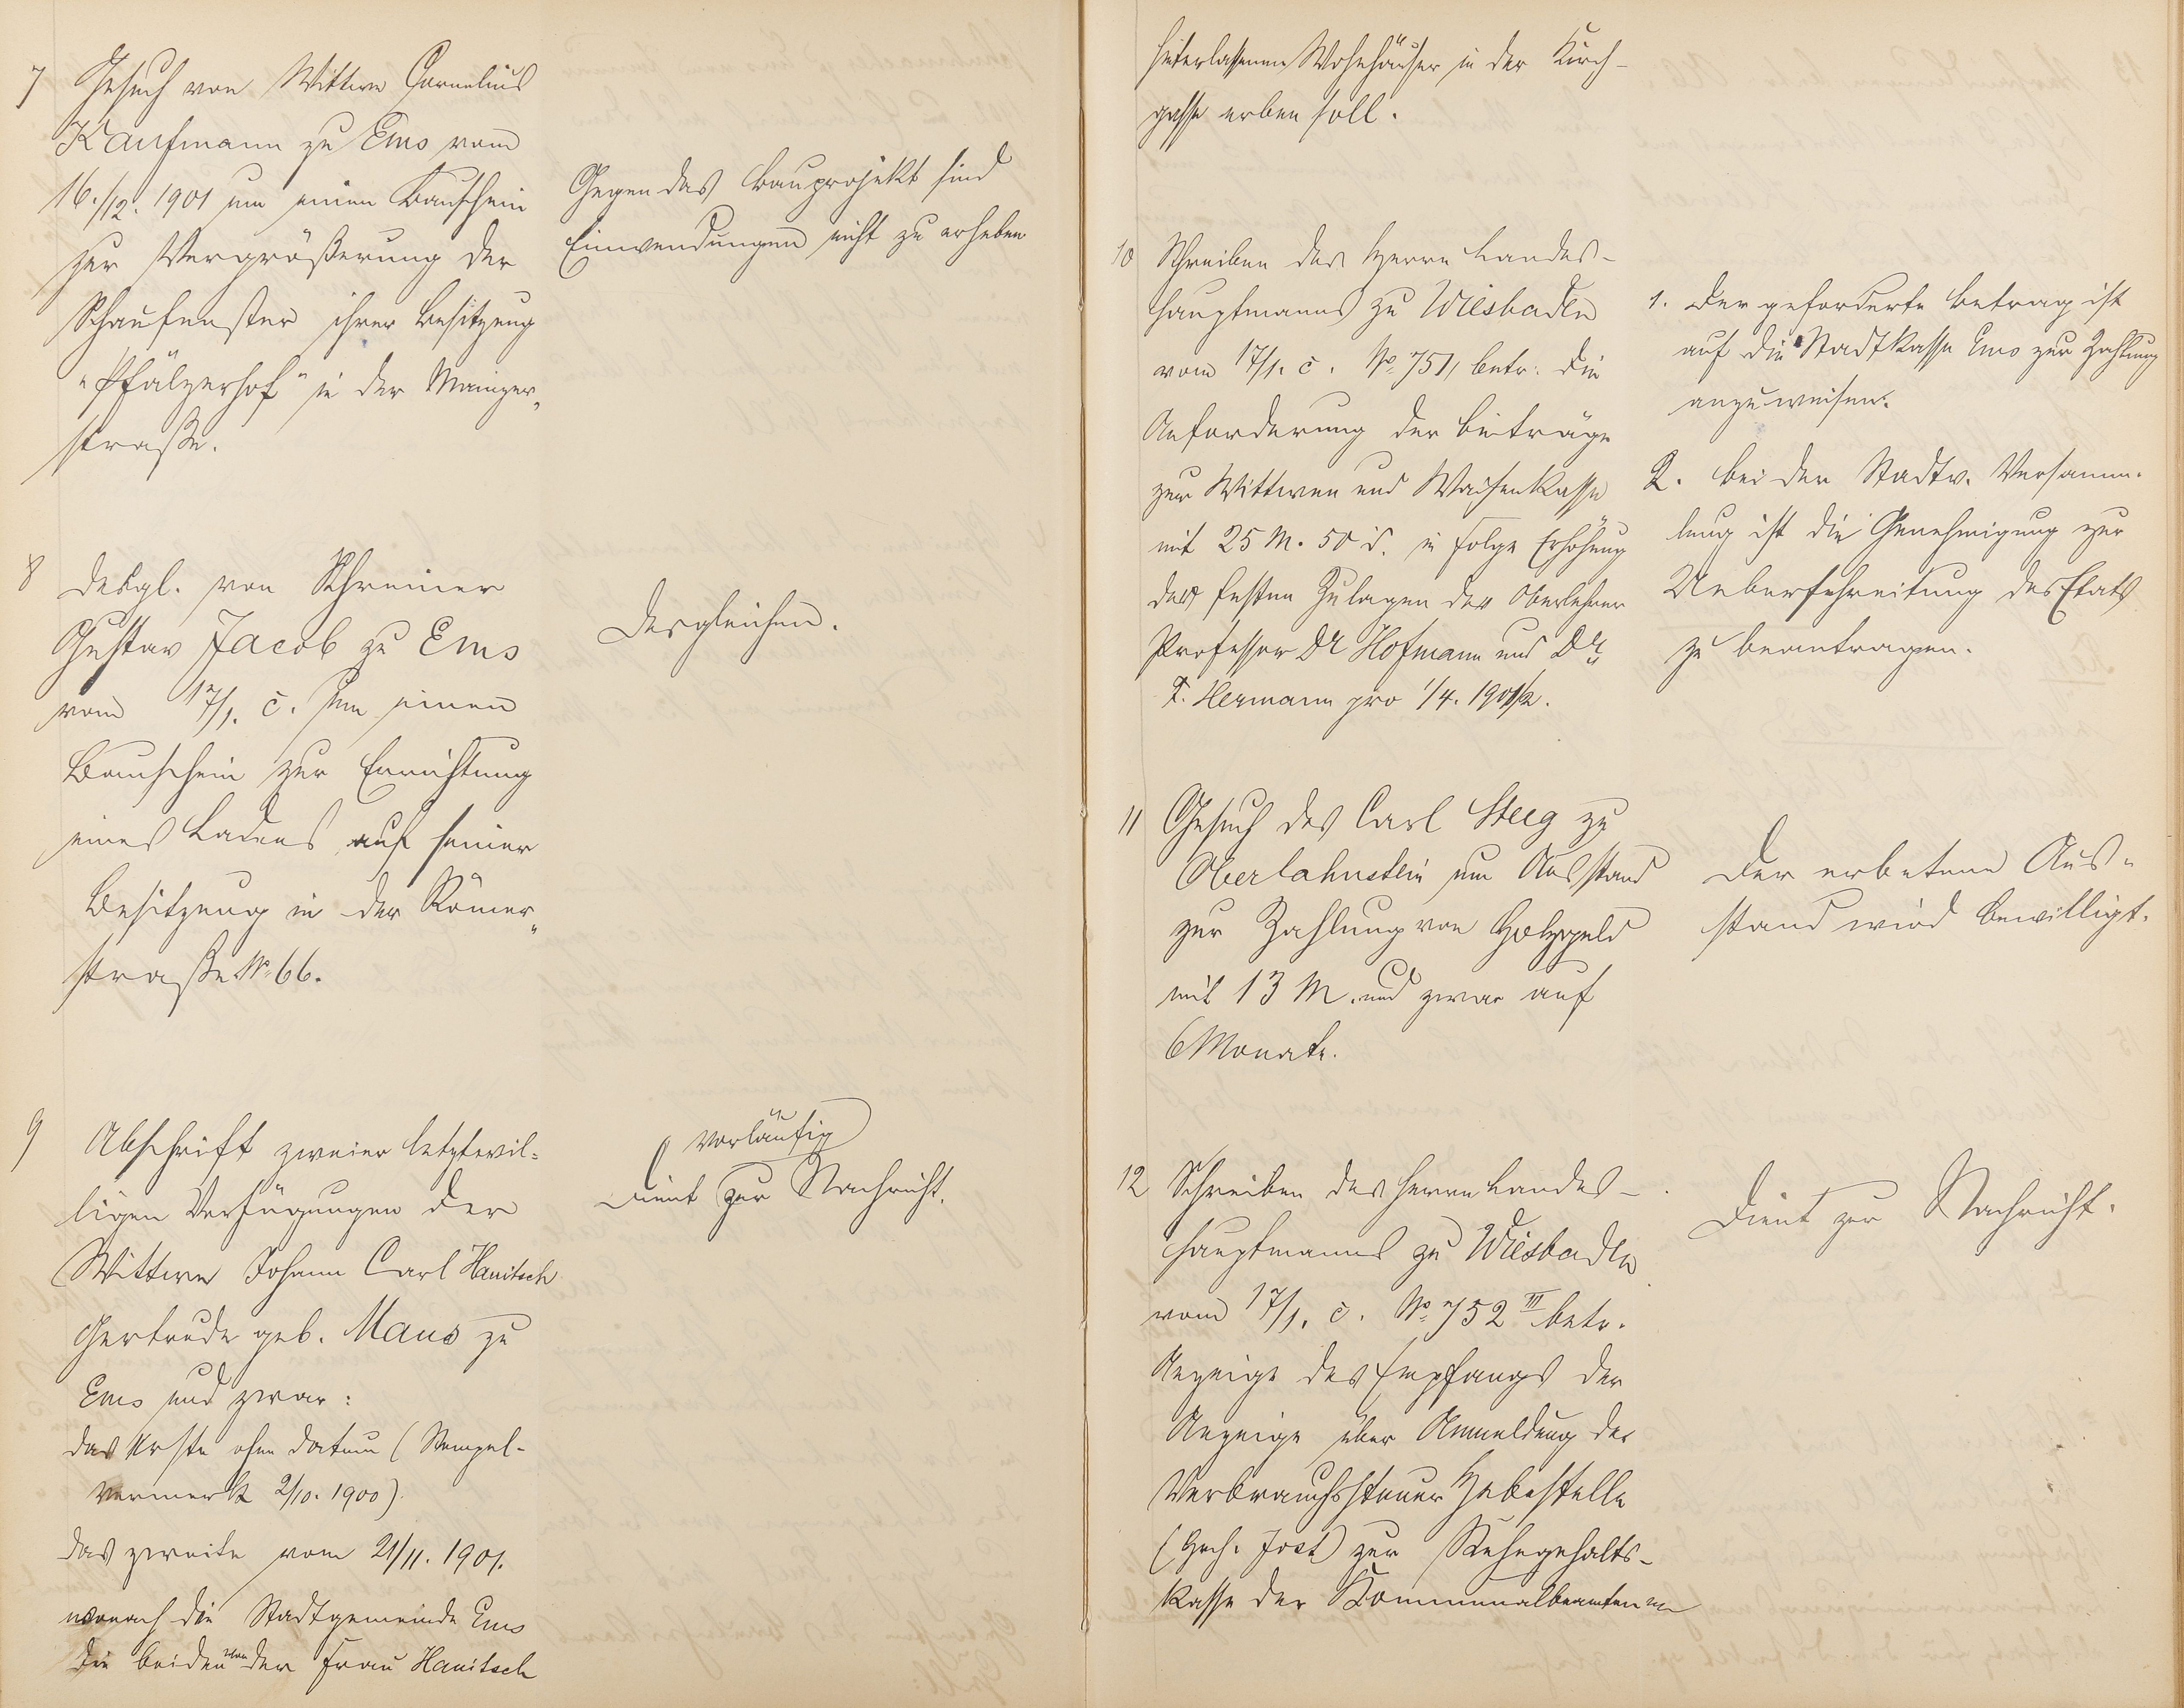 7 Gesuch von Wittwe Cornelius
Kaufmann zu Ems vom
16./12. 1901 um einen Bauschein
zur Vergrößerung der
Schaufenster ihrer Besitzung
"Pfälzerhof" in der Mainzer„
straße.
Gegen das Bauprojekt sind
Einwendungen nicht zu erheben
8 desgl. von Schreiner
Gustav Jacob zu Ems
vom 17/1. c. um einen
Bauschein zur Errichtung
eines Ladens auf seiner
Besitzung in der Römer„
straße No 66.
Desgleichen.
9 Abschrift zweier letztwil-
ligen Verfügungen der
Wittwe Johann Carl Hanitsch
Gertrude geb. Maus zu
Ems und zwar:
das Erste ohne Datum (Stempel-
vermerk 2/10. 1900).
das zweite vom 21/11. 1901.
wonach die Stadtgemeinde Ems
die beiden von der Frau Hanitsch
vorläufig
Dient zur Nachricht.
hinterlassenen Wohnhäuser in der Kirch-
gasse erben soll.
10 Schreiben des Herrn Landes-
hauptmanns zu Wiesbaden
vom 17/1. c. No 751, betr. die
Anforderung der Beiträge
zur Wittwen und Waisenkasse
mit 25 M. 50 d. in Folge Erhöhung
der festen Zulagen der Oberlehrer
Professor Dr Hofmann und Dr.
F. Hermann pro 1/4. 1901/2.
1. Der geforderte Betrag ist
auf die Stadtkasse Ems zur Zahlung
anzuweisen.
2. Bei der Stadtv. Versamm-
lung ist die Genehmigung zur
Ueberschreitung des Etats
zu beantragen.
11 Gesuch des Carl Steeg zu
Oberlahnstein um Ausstand
zur Zahlung von Holzgeld
mit 13 M. und zwar auf
6 Monate.
Der erbetene Aus-
stand wird bewilligt.
12 Schreiben des Herrn Landes-
hauptmanns zu Wiesbaden
vom 17/1. c. No 752 III betr.
Anzeige des Empfangs der
Anzeige über Anmeldung der
Verbrauchssteuer Hebestelle
(Hch. Jost) zur Ruhegehalts-
kasse der Kommunalbeamten
Dient zur Nachricht.